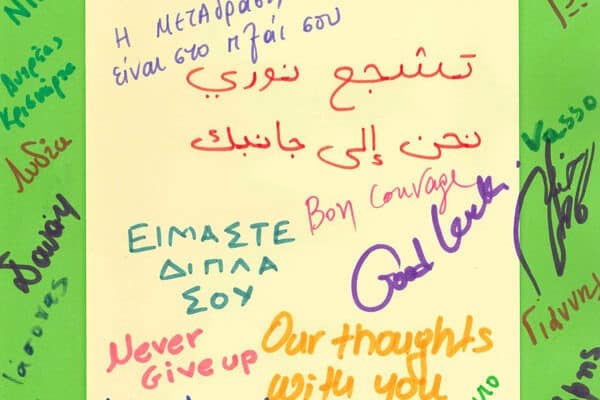 Η ΜΕΤΑδραση
είναι στο πλάι σου
تشجع نوري
نحن إلى جانبك
Bon courage
Good Luck
ΕΙΜΑΣΤΕ
ΔΙΠΛΑ
ΣΟΥ
Never
Give up
Our thoughts
with you
Λυδία
Δανάη
Ιάσονας
Vasso
Γιάννης